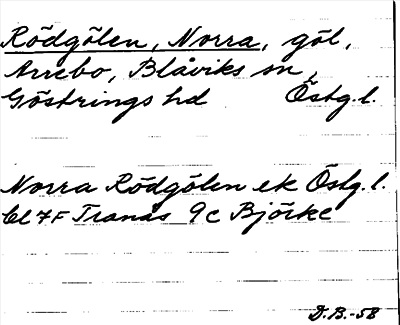 Rödgölen, Norra, göl,
Arrebo, Blåviks sn,
Göstrings hd Östg.l.
Norra Rödgölen ek Östg.l.
bl 7F Tranås 9c Björke
D.B.-58